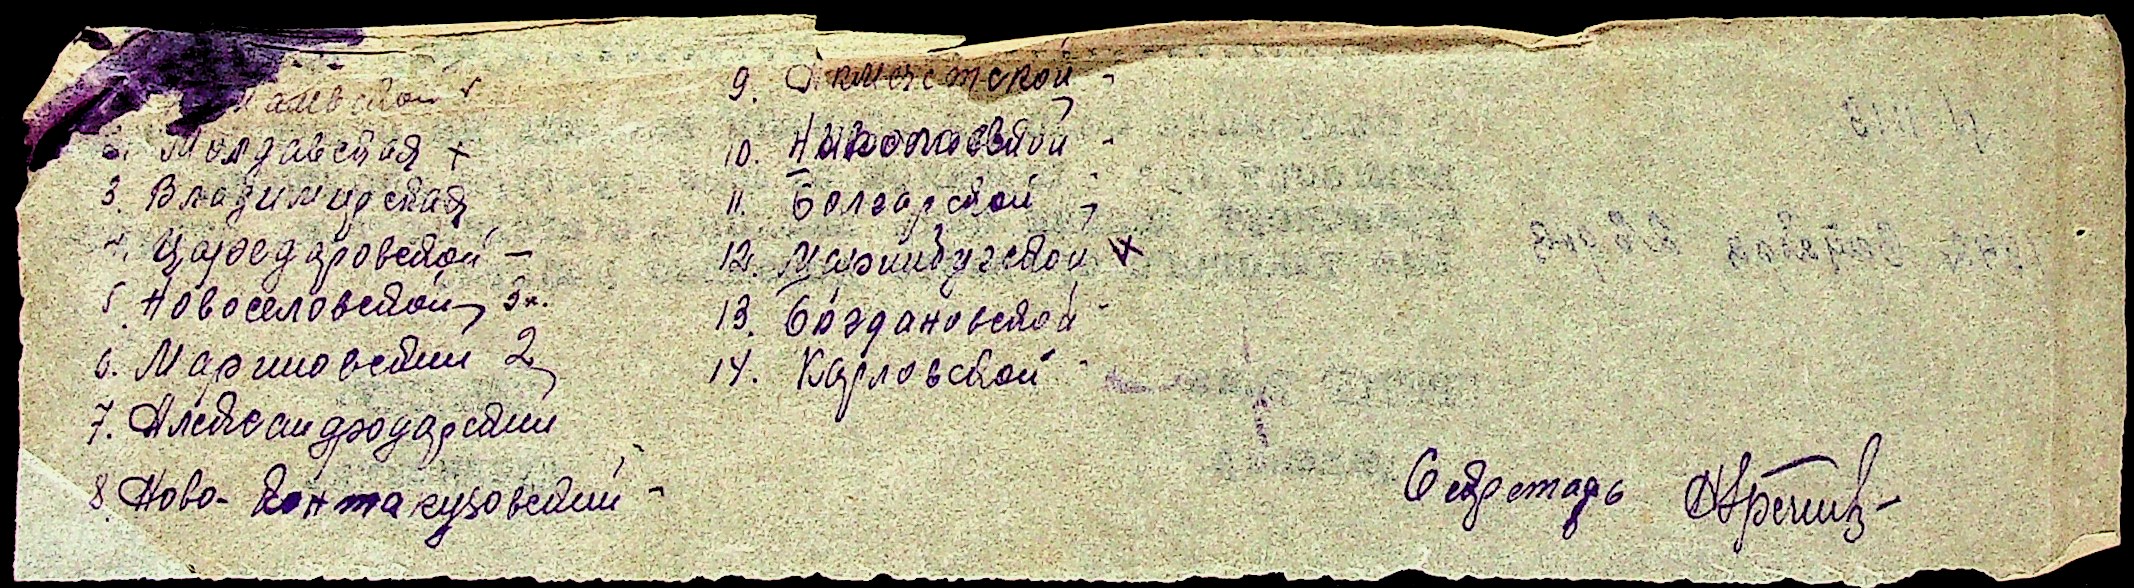 2. Молдавская +
3. Владимирская
4. Цареdaровской –
5. Новоселовской 3к.
6. Мариновский 2
7. Александродарский
8. Ново-Кантакузовский -
9. Акмечетской -
10. Николаевской -
11. Болгарской
12. Мариинбургской +
13. Богдановской -
14. Карловской -
Секретарь